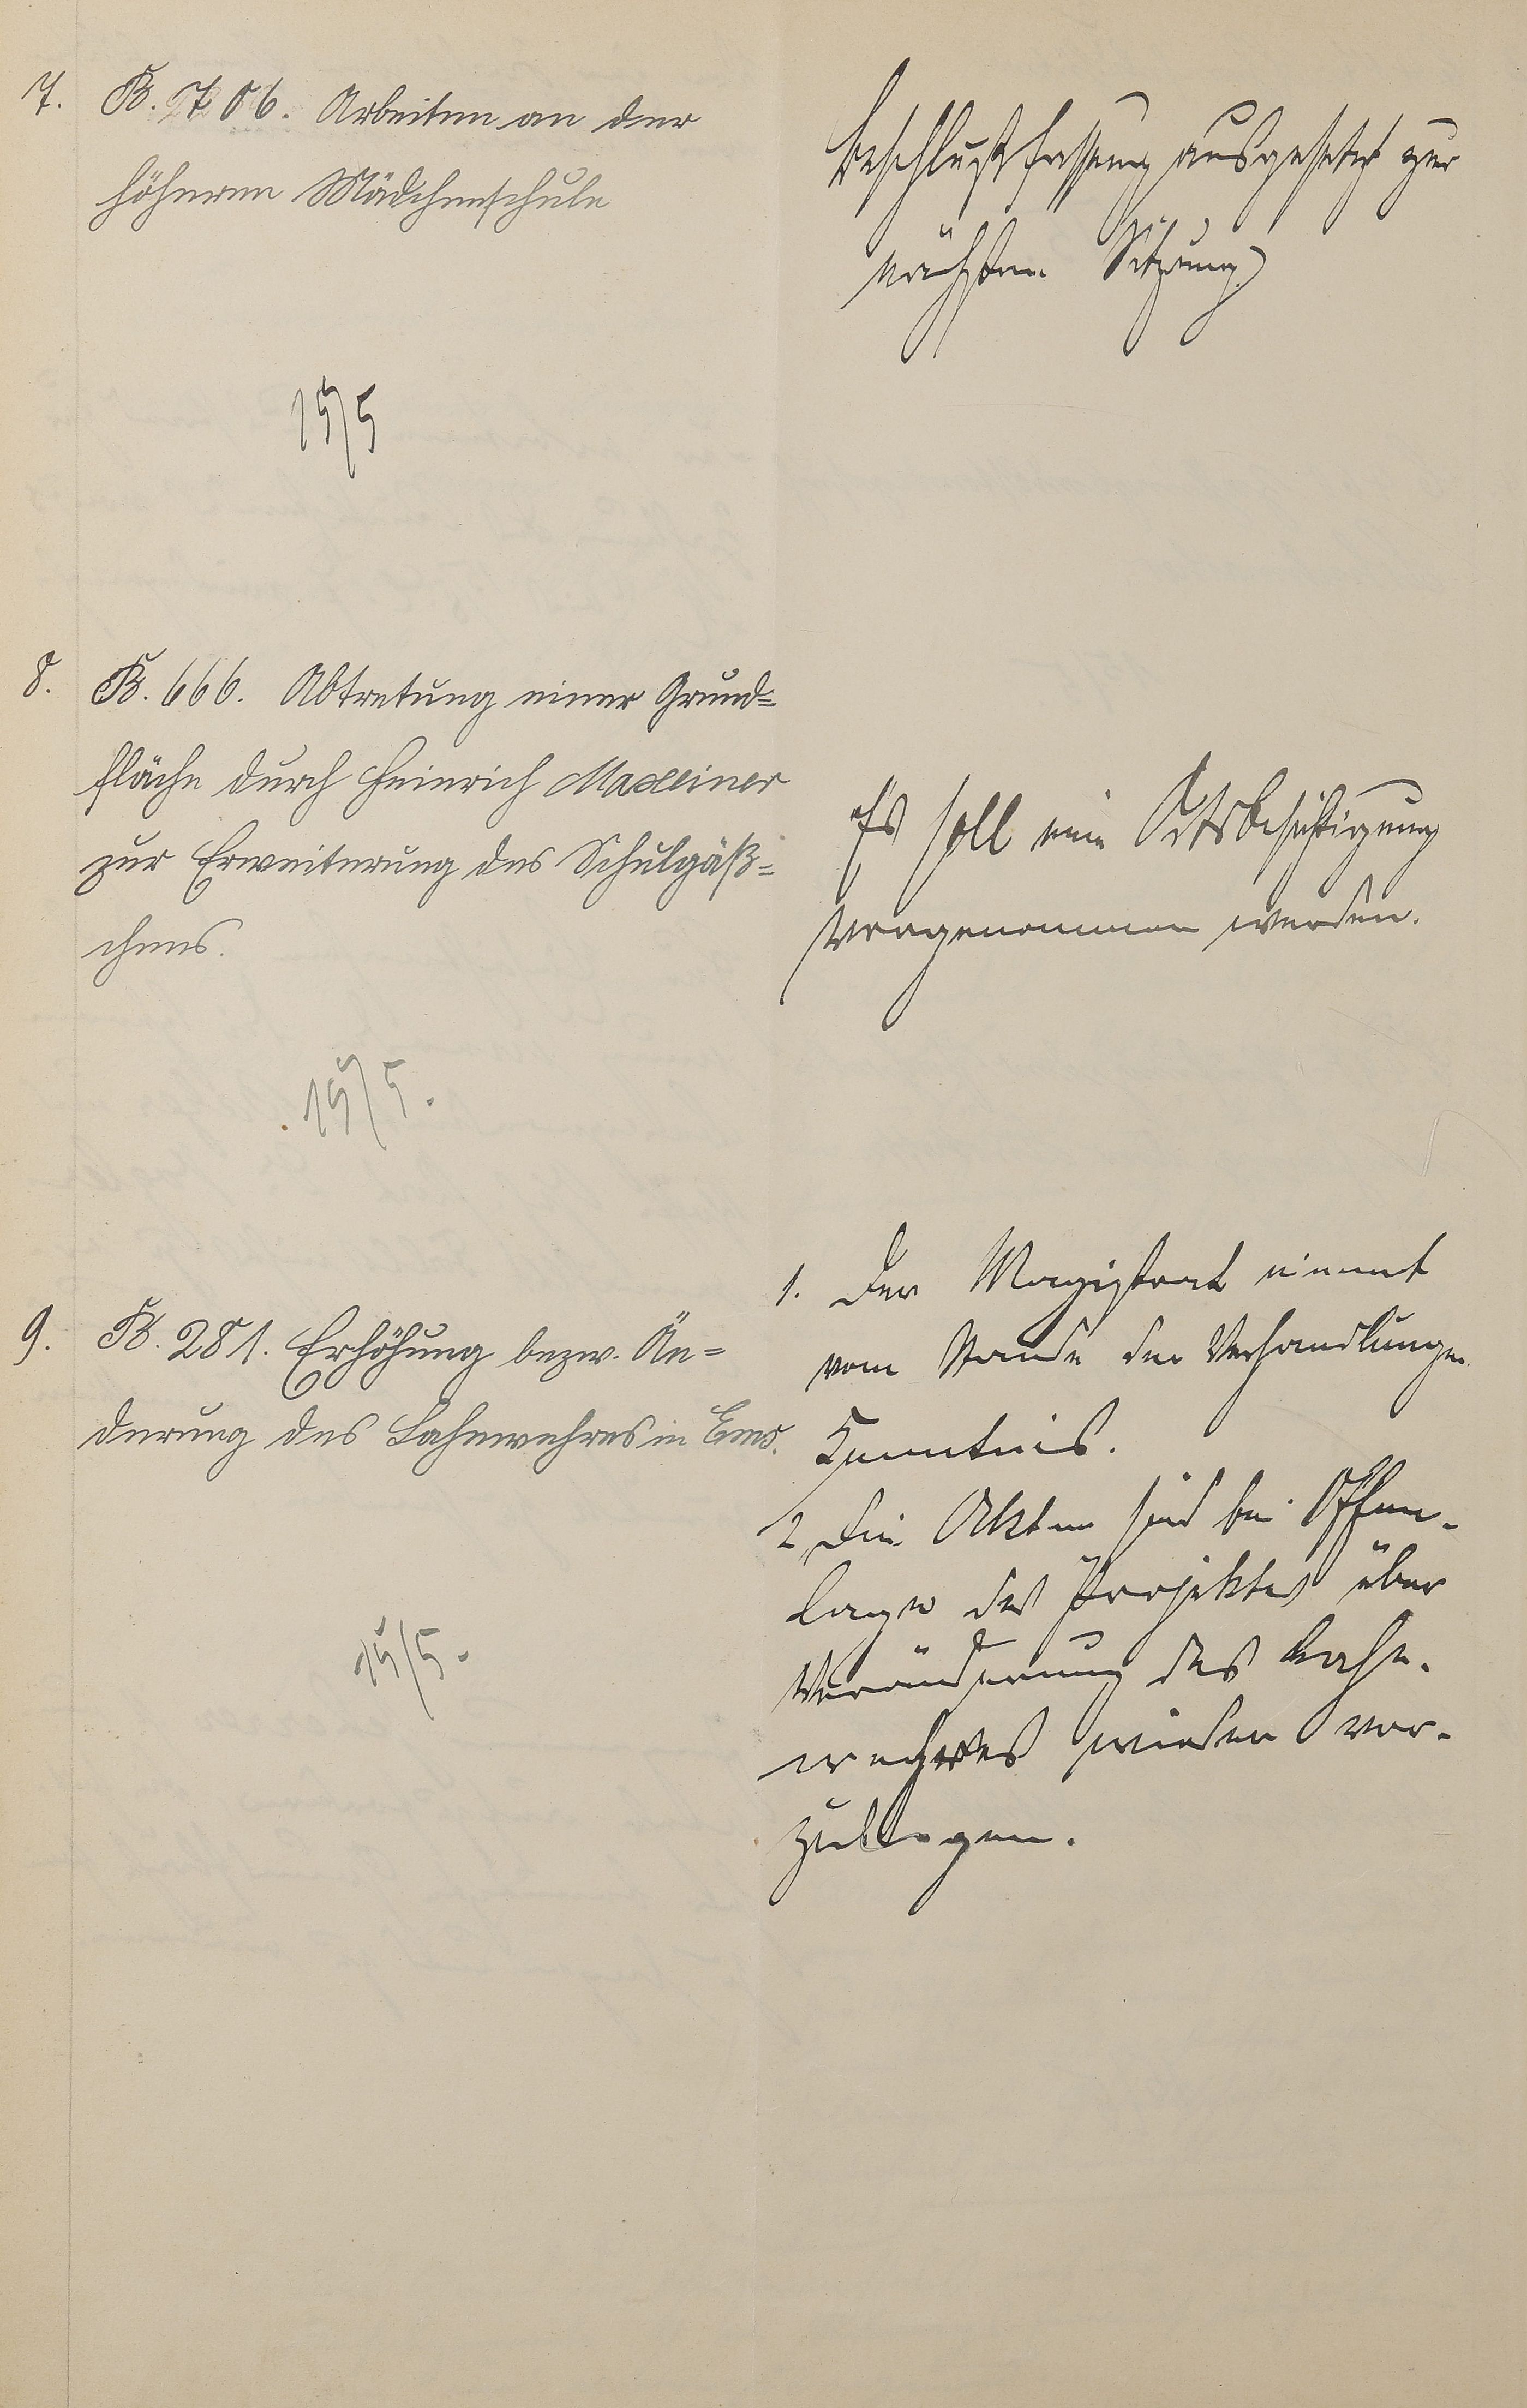 7. B. 706. Arbeiten an der
höheren Mädchenschule
Beschlußfassung ausgesetzt zur
nächsten Sitzung
15/5
8. B. 666. Abtretung einer Grund=
fläche durch Heinrich Maxeiner
zur Erweiterung des Schulgäß=
chens.
Es soll eine Ortsbesichtigung
vorgenommen werden.
15/5.
9. B. 281. Erhöhung bezw. Än=
derung des Lahnwehres in Ems.
15/5.
1. Der Magistrat nimmt
vom Stande der Verhandlungen
Kenntnis.
2 Die Akten sind bei Offen-
lage des Projektes über
Veränderung des Lahn-
wehres wieder vor-
zulegen.